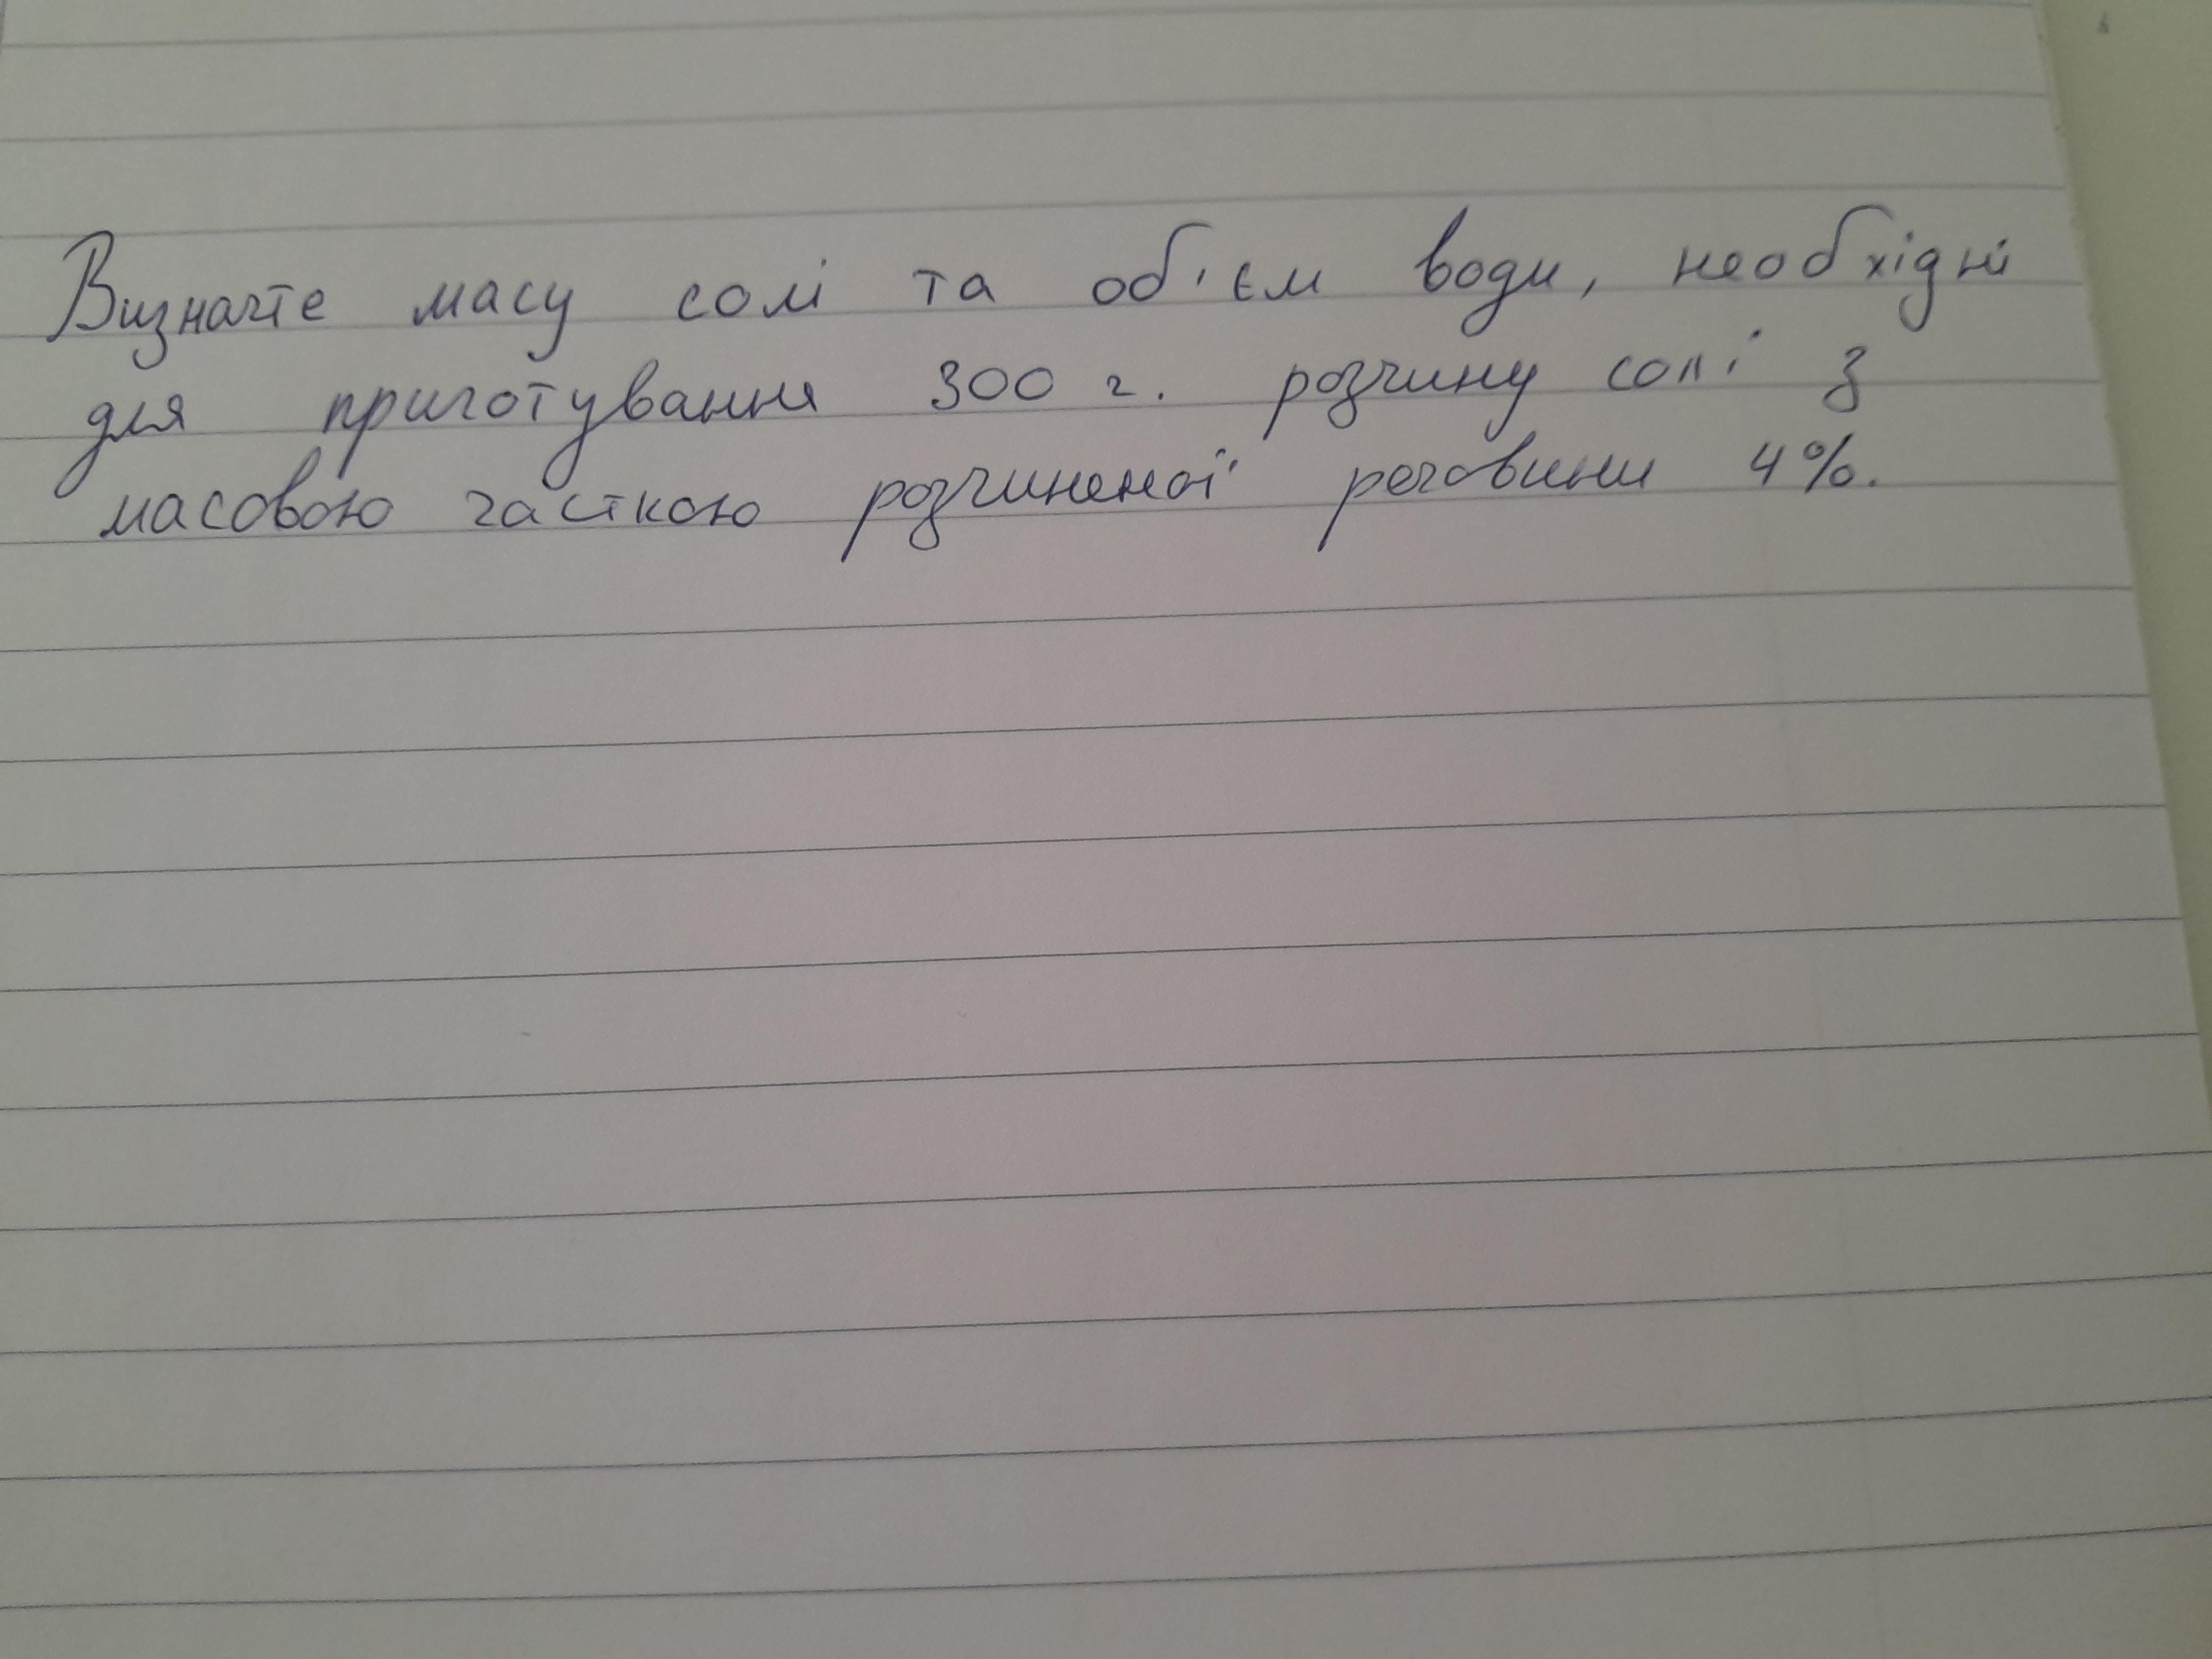 Визначте масу солі та об'єм води, необхідні
для приготування 300 г. розчину солі з
масовою часткою розчиненої речовини 4%.